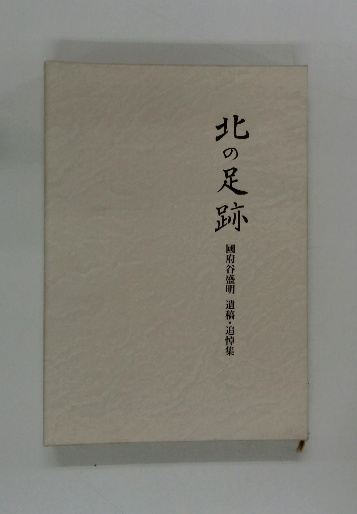 北の足跡
國府谷盛明 遺稿・追悼集